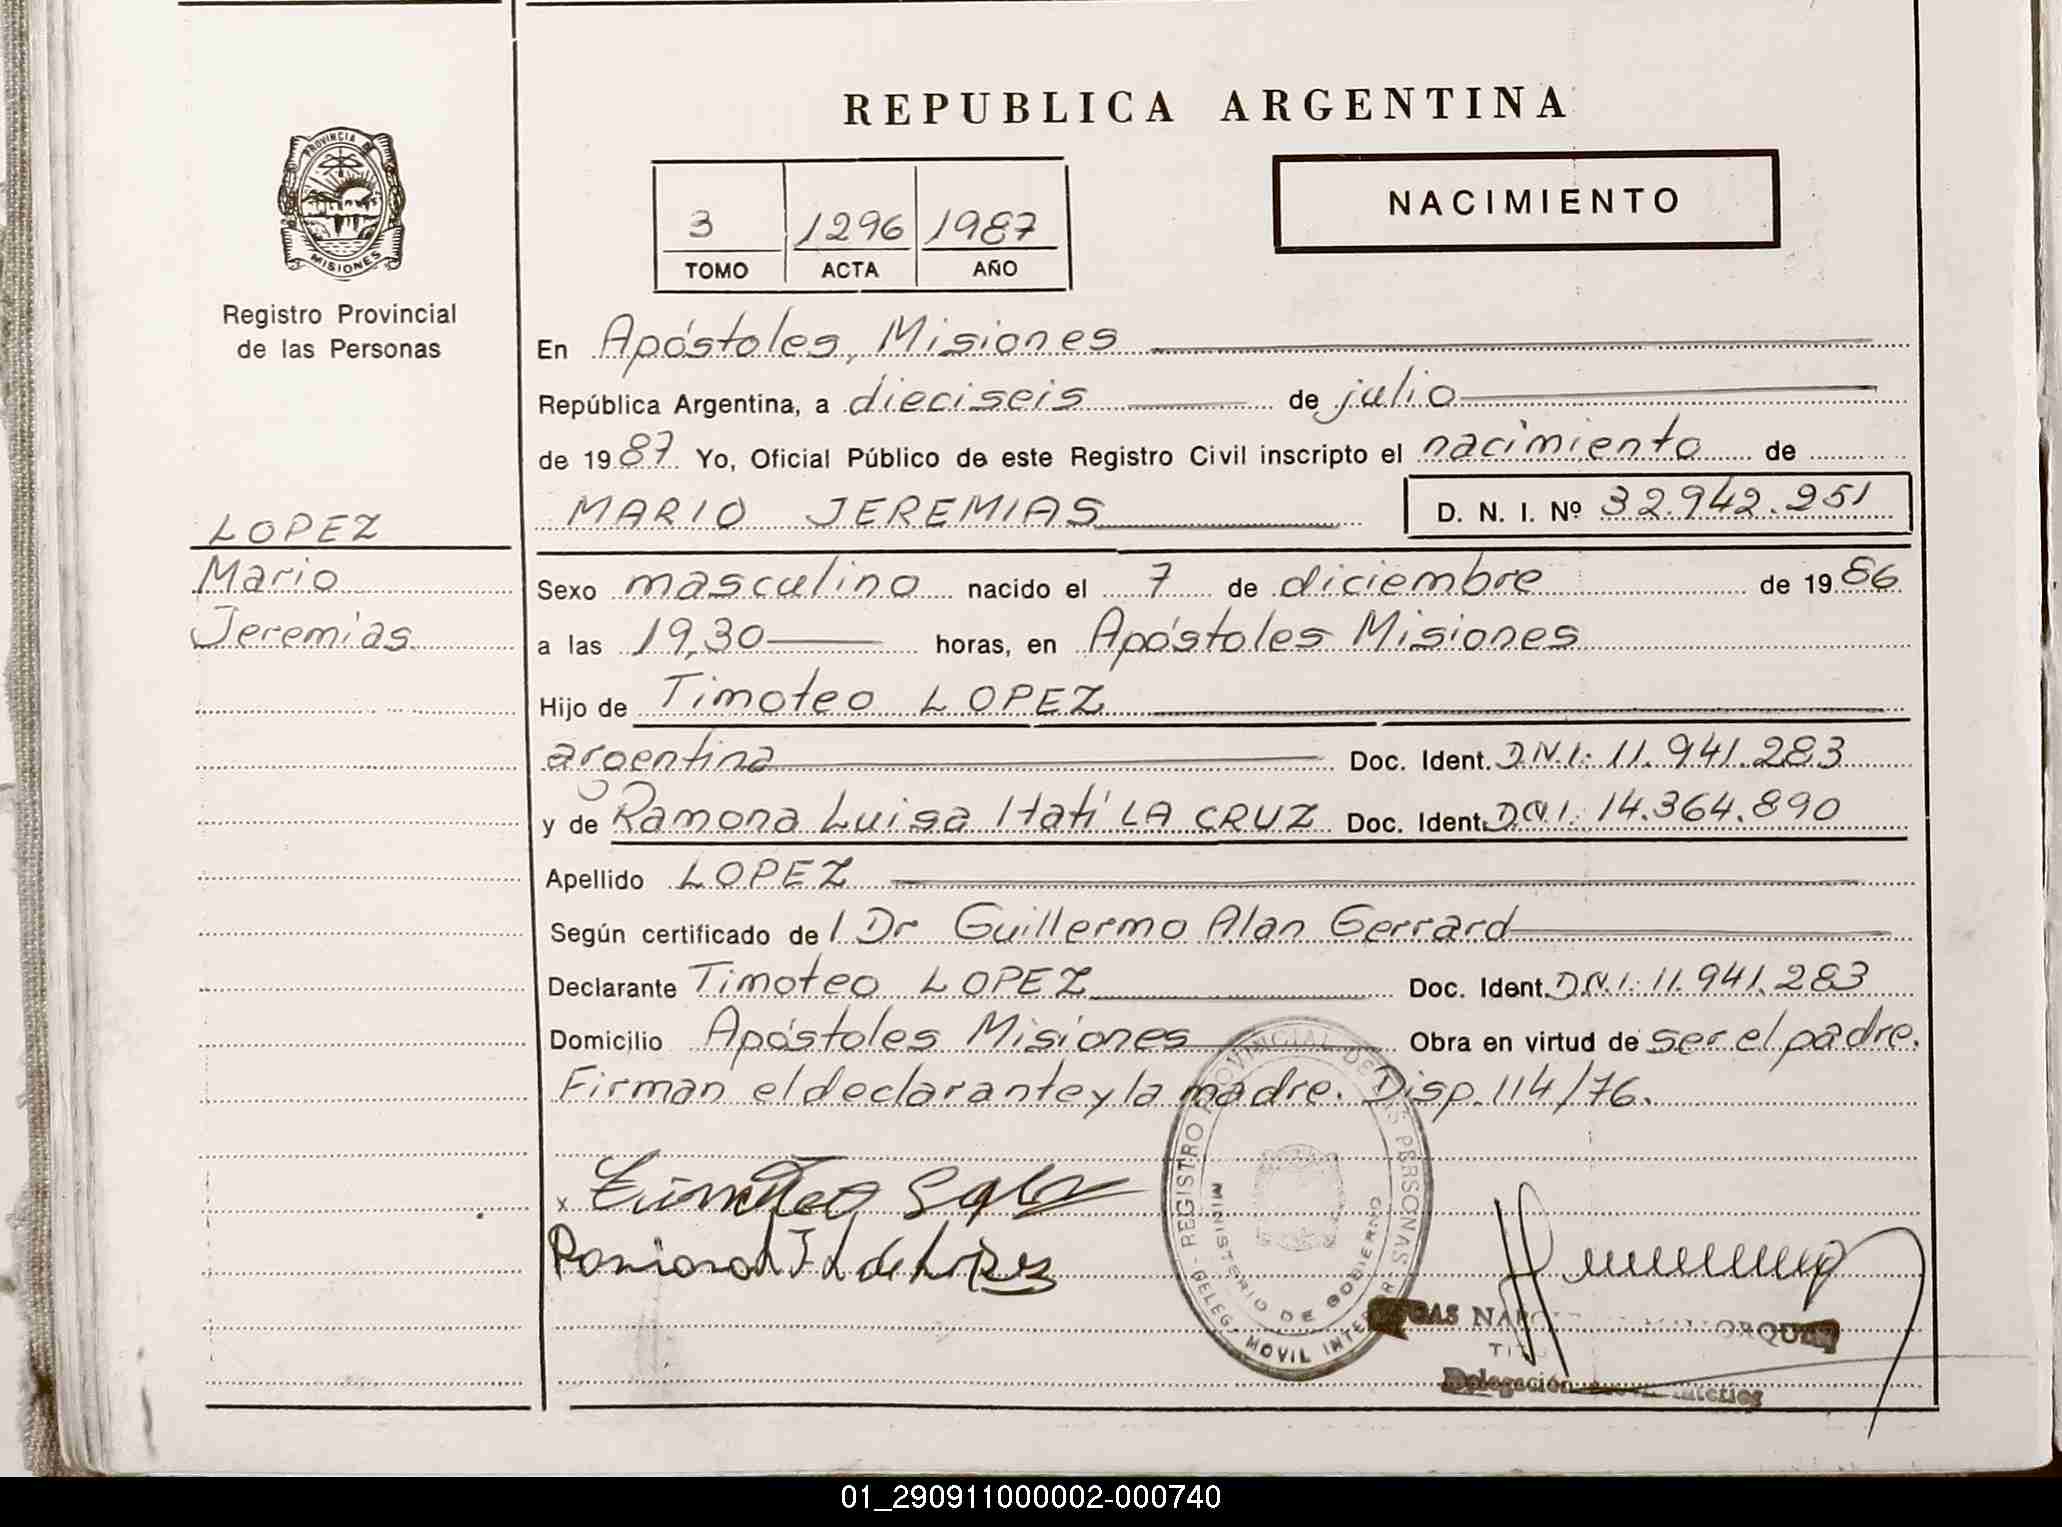 REPUBLICA ARGENTINA
PROVINCIA DE
MISIONES
Registro Provincial
de las Personas
3 1296 1987
TOMO ACTA AÑO
NACIMIENTO
LOPEZ
Mario
Jeremías
En Apóstoles, Misiones
República Argentina, a dieciseis de julio
de 1987 Yo, Oficial Público de este Registro Civil inscripto el nacimiento de
MARIO JEREMIAS D. N. I. Nº 32.942.251
Sexo masculino nacido el 7 de diciembre de 1986
a las 19,30 horas, en Apóstoles Misiones
Hijo de Timoteo LOPEZ
argentina Doc. Ident. D.N.I: 11.941.283
y de Ramona Luisa Itatí LA CRUZ Doc. Ident. D.N.I: 14.364.890
Apellido LOPEZ
Según certificado de l Dr Guillermo Alan Gerrard
Declarante Timoteo LOPEZ Doc. Ident. D.N.I: 11.941.283
Domicilio Apóstoles Misiones Obra en virtud de ser el padre.
Firman el declarante y la madre. Disp. 114/76.
x Timoteo
de Lopez
REGISTRO PROVINCIAL DE LAS PERSONAS
MINISTERIO DE GOBIERNO
DELEG. MOVIL INTER
Delegación
01_290911000002-000740